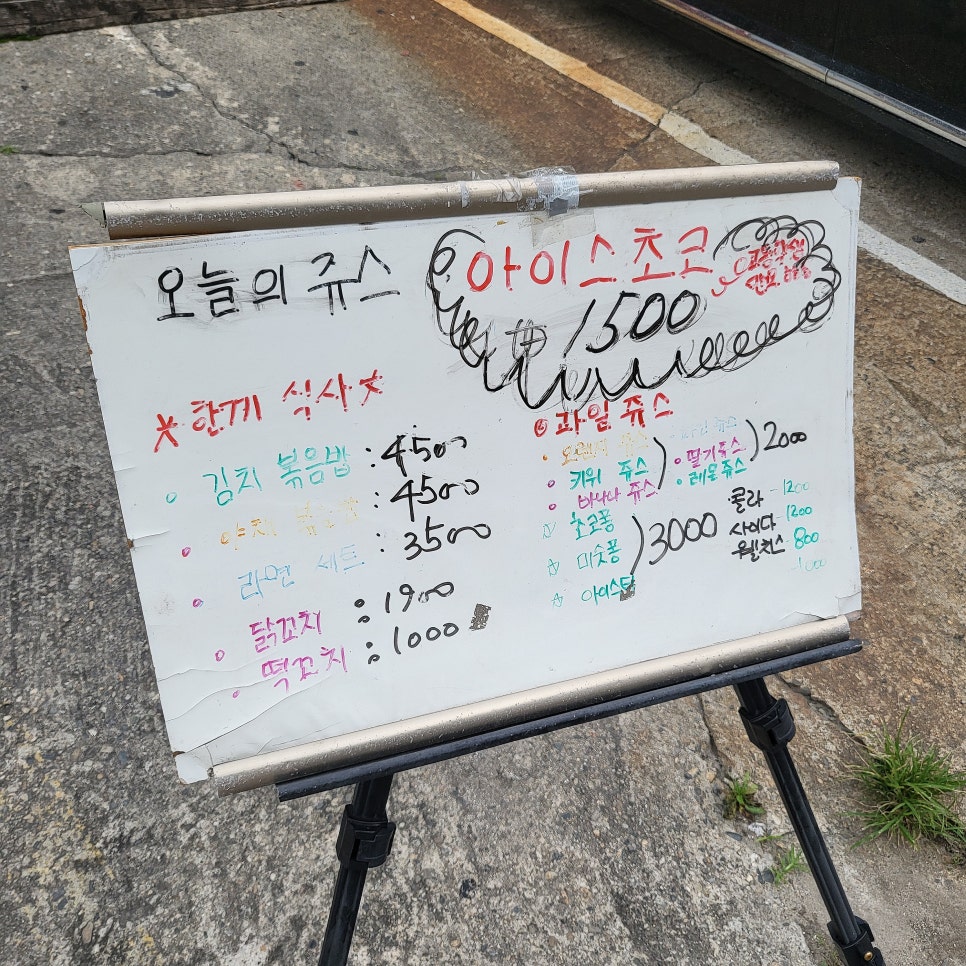 오늘의 쥬스
아이스쵸코
₩ 1500
*한께 식사*
김치 볶음밥 : 4500
야채 볶음밥 : 4500
라면 세트 : 3500
닭꼬치 : 1900
떡꼬치 : 1000
과일 쥬스
오렌지 쥬스
키위 쥬스
바나나 쥬스
쥬스
딸기쥬스
레몬쥬스
2000
초코퐁
미숫퐁
아이스티
3000
콜라 - 1200
사이다 1200
웰치스 - 800